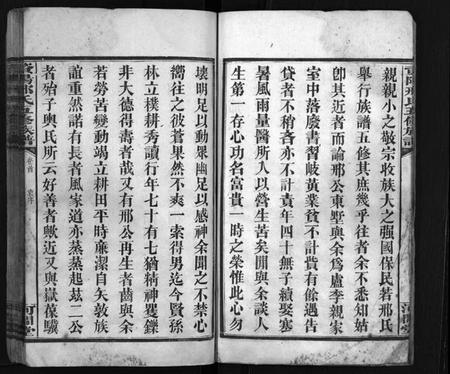 親親小之敬宗收族大之強國保民若邢氏
舉行族譜五修其庶幾乎往者余不悉知姑
卽其近者而論邢公東墅與余爲盧李親家
室中落廢書習岐黃業貧不計費有餘遇告
貸者不稍吝亦不計責年四十無子續娶蹇
暑風雨量醫所入以營生苦矣閒與余談人
生第一存心功名富貴一時之榮惟此心勿
壞明足以動衆幽足以感神余聞之不禁心
嚮往之彼蒼果然不爽一索得男迄今賢孫
林立樸耕秀讀行年七十有七猶精神矍鑠
非大德得壽者哉又有邢公再生者齒與余
若勞苦變動竭立耕田平時廉潔自矢敦族
誼重然諾有長者風家道亦蒸蒸起茲二公
者殆子輿氏所云好善者歟近又與嶽葆驥
邢氏五修族譜
卷首
河間堂